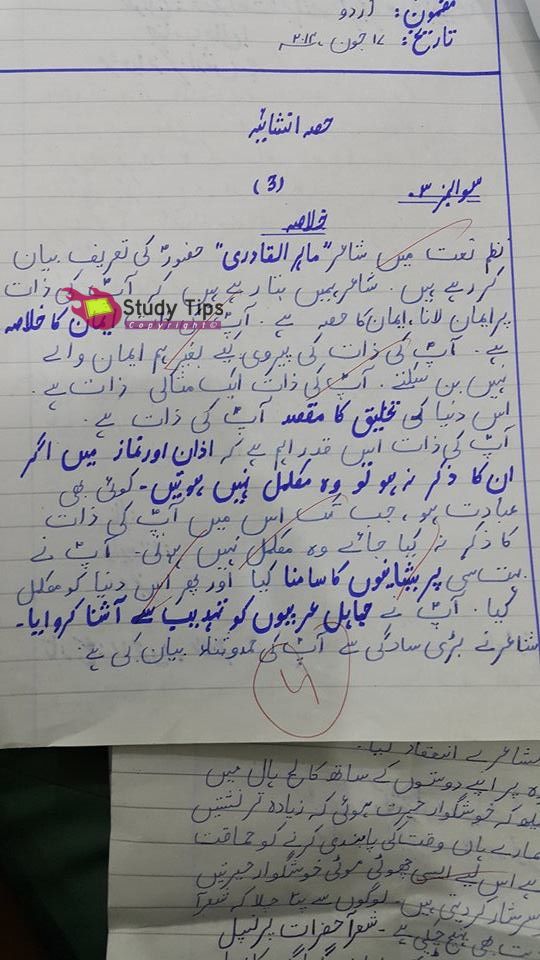 مضمون: اردو
تاریخ: ۱۷ جون
حصہ انشائیہ
سوال نمبر ۳۔ (3)
خلاصہ
نظم نعت میں شاعر "ماہر القادری" حضورؐ کی تعریف بیان
کر رہے ہیں۔ شاعر ہمیں بتا رہے ہیں کہ آپؐ کی ذات
پر ایمان لانا، ایمان کا حصہ ہے۔ آپؐ ایمان کا خلاصہ
Study Tips
Copyright©
ہے۔ آپؐ کی ذات کی پیروی کیے بغیر ہم ایمان والے
نہیں بن سکتے۔ آپؐ کی ذات ایک مثالی ذات ہے۔
اس دنیا کی تخلیق کا مقصد آپؐ کی ذات ہے۔
آپؐ کی ذات اس قدر اہم ہے کہ اذان اور نماز میں اگر
ان کا ذکر نہ ہو تو وہ مکمل نہیں ہوتیں۔ کوئی بھی
عبادت ہو، جب تک اس میں آپؐ کی ذات
کا ذکر نہ کیا جائے وہ مکمل نہیں ہوتی۔ آپؐ نے
بہت سی پریشانیوں کا سامنا کیا اور پھر اس دنیا کو مکمل
کیا۔ آپؐ نے جاہل عربیوں کو تہذیب سے آشنا کروایا۔
شاعر نے بڑی سادگی سے آپؐ کی حمدوثناء بیان کی ہے
4
مشاعرے انعقاد کیا۔
پر اپنے دوستوں کے ساتھ کالج ہال میں
کہ خوشگوار حیرت ہوئی کہ زیادہ تر نشتیں
ہمارے ہاں وقت کی پابندی کرنے کو حماقت
ہے اس لیے ایسی چھوٹی موٹی خوشگوار حیرتیں
سرشار کر دیتی ہیں۔ لوگوں سے پتا چلا کہ شعرآ
بھی پہنچ چکے ہے۔ شعرآ حضرات پرنسپل